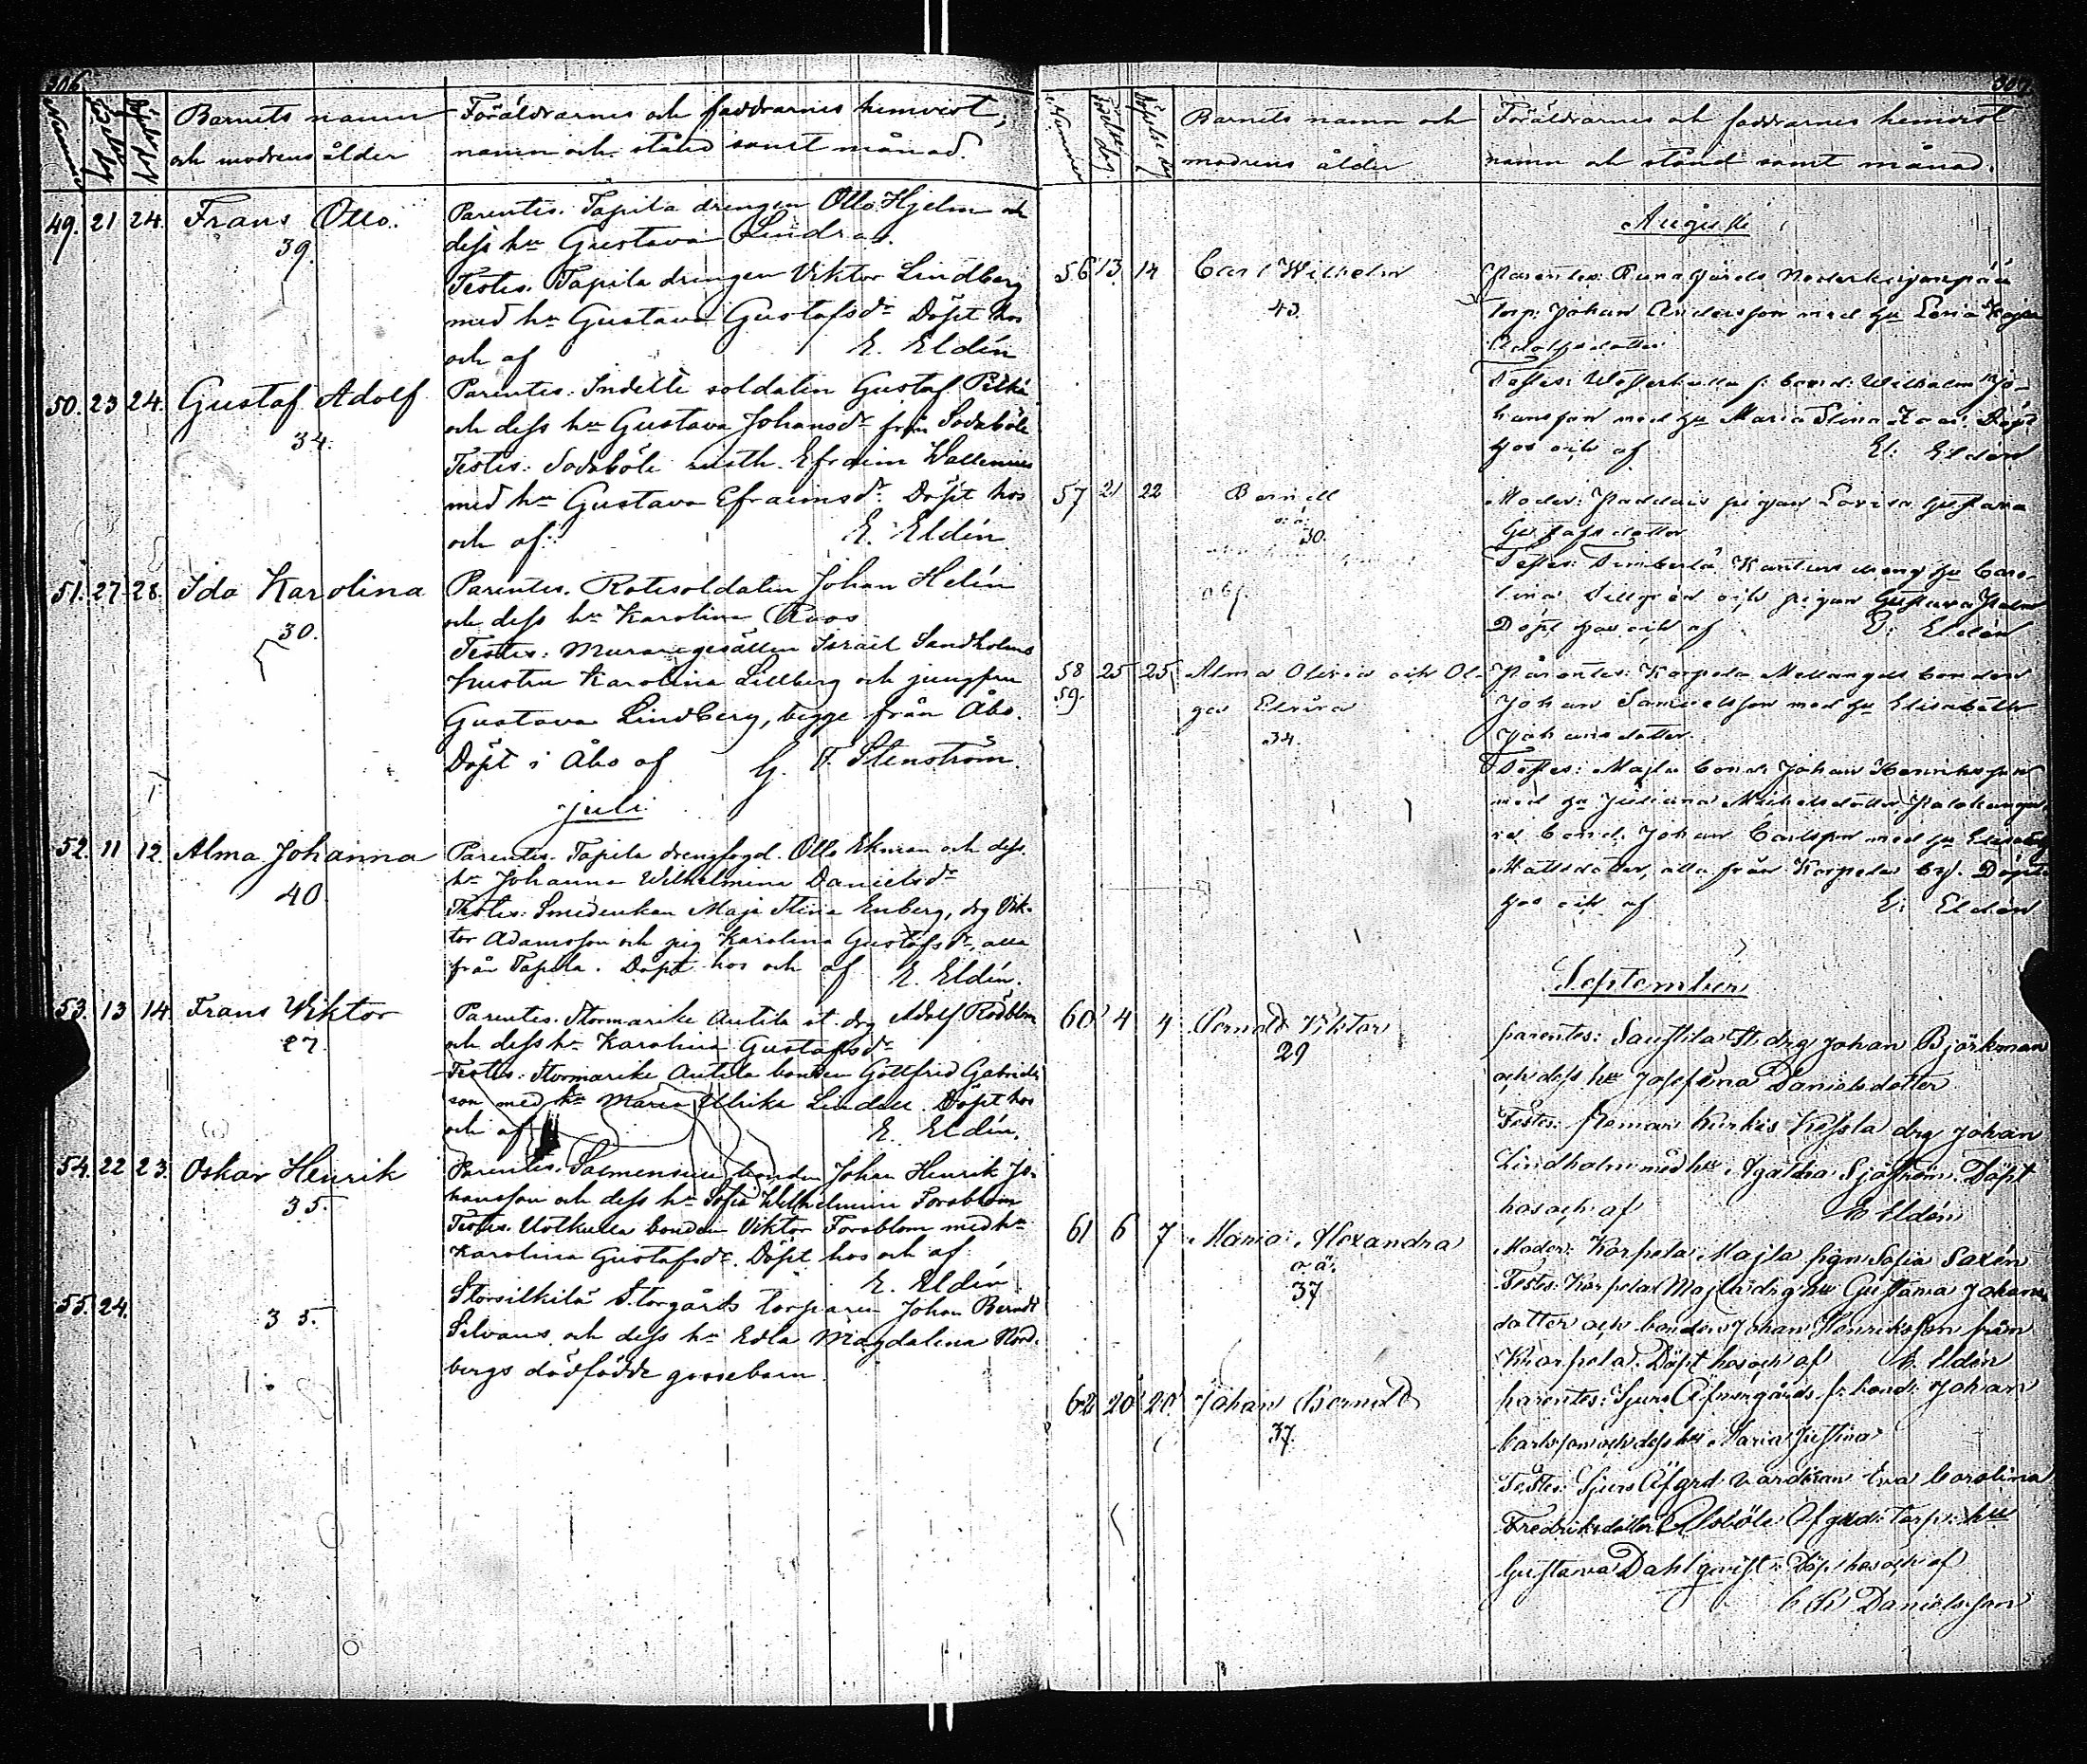 306
Nummer
Född dag
Döpt dag
Barnets namn
och modrens ålder
Föräldrarnes och faddrarnes hemvist,
namn och stånd samt månad.
49. 21 24. Frans Otto.
39.
Parentes. Tapila drengen Otto Hjelm och
dess hu Gustava
Testes. Tapila drengen Viktor Lindberg
med hu Gustava Gustafsdr Döpt hos
och af E. Eldén
50. 23 24. Gustaf Adolf
34.
Parentes: Indelte soldaten Gustaf
och dess hu Gustava Johansdr från Sodaböle
Testes: Sodaböle rusth. Efraim Wallenius
med hu Gustava Efraimsdr Döpt hos
och af: E. Eldén
51. 27 28. Ida Karolina
30.
Parentes. Rotesoldaten Johan Helén
och dess hu Karolina Roos
Testes: Muraregesällen Israel Sandholms
hustru Karolina Lillberg och jungfru
Gustava Lindberg, begge från Åbo.
Döpt i Åbo af G. F. Stenström.
juli
52. 11 12. Alma Johanna
40
Parentes. Tapila drengfogd. Otto Ekman och dess
hu Johanna Wilhelmina Danielsdr
Testes: Smedenkan Maja Stina Enberg, drg Vik-
tor Adamsson och pig Karolina Gustafsdr, alla
från Tapila. Döpt hos och af E. Eldén.
53. 13 14. Frans Viktor
27.
Parentes. Stormarike Antila st. drg Adolf Rödblom
och dess hu Karolina Gustafsdr
Testes: Stormarike Antila bonden Gottfrid Gabriels
son med hu Maria Ulrika Lindell. Döpt hos
och af E. Eldén.
54. 22 23. Oskar Henrik
35.
Parentes. bonden Johan Henrik Jo-
hansson och dess hu Sofia Wilhelmina Forsblom
Testes. bonden Viktor Forsblom med hu
Karolina Gustafsdr. Döpt hos och af
E. Eldén
55. 24.
35.
Storsilkilä Storgårds torparen Johan Berndt
Silvans och dess hu Edla Magdalena Nord-
bergs dödfödde gossebarn.
307.
Nummer
Född dag
Döpelse dag
Barnets namn och
modrens ålder
Föräldrarnes och faddrarnes hemvist
namn och stånd samt månad.
Augusti
56 13. 14 Carl Wilhelm
43.
Parentes:
Torp: Johan Andersson med hu Lena Kajsa
Adolfsdotter
Testes: bond: Wilhelm Jo-
hansson med hu Maria Stina Döpt
hos och af E: Eldén
57 21 22 Berndt
o: ä:
30.
Moder: pigan Lovisa Gustava
Gustafsdotter
Testes: dreng hu Caro-
lina och pigan Gustava
Döpt hos och af E: Eldén
58 25 25 Alma Olivia och Ol-
59. ga Elvira
34.
Parentes: Karpela Mellangårds bonden
Johan Samuelsson med hu Elisabeth
Johansdotter
Testes: Majla bond: Johan Henriksson
med hu Juliana Michelsdotter
bond. Johan Carlsson med hu
Mattsdotter, alla från Karpela by. Döpt
hos och af E: Eldén
September
60 4 4 Bernolt Viktor
29
parentes: St. drg Johan Björkman
och dess hu Josefina Danielsdotter
Testes: drg Johan
Lindholm med hu Agatha Sjöström. Döpt
hos och af E Eldén
61 6 7 Maria Alexandra
o ä.
37
Moder: Karpela Majla pign Sofia Saxén
Testes: Karpela Majla drg hu Gustava Johans
dotter och bonden Johan Henriksson från
Karpela. Döpt hos och af E. Eldén
62 20 20 Johan Berndt
37.
parentes: bond: Johan
Carlsson och dess hu Maria Justina
Testes: Eva Carolina
Fredriksdotter torp: hu
Gustava Dahlqvist: Döpt hos och af
Danielsson